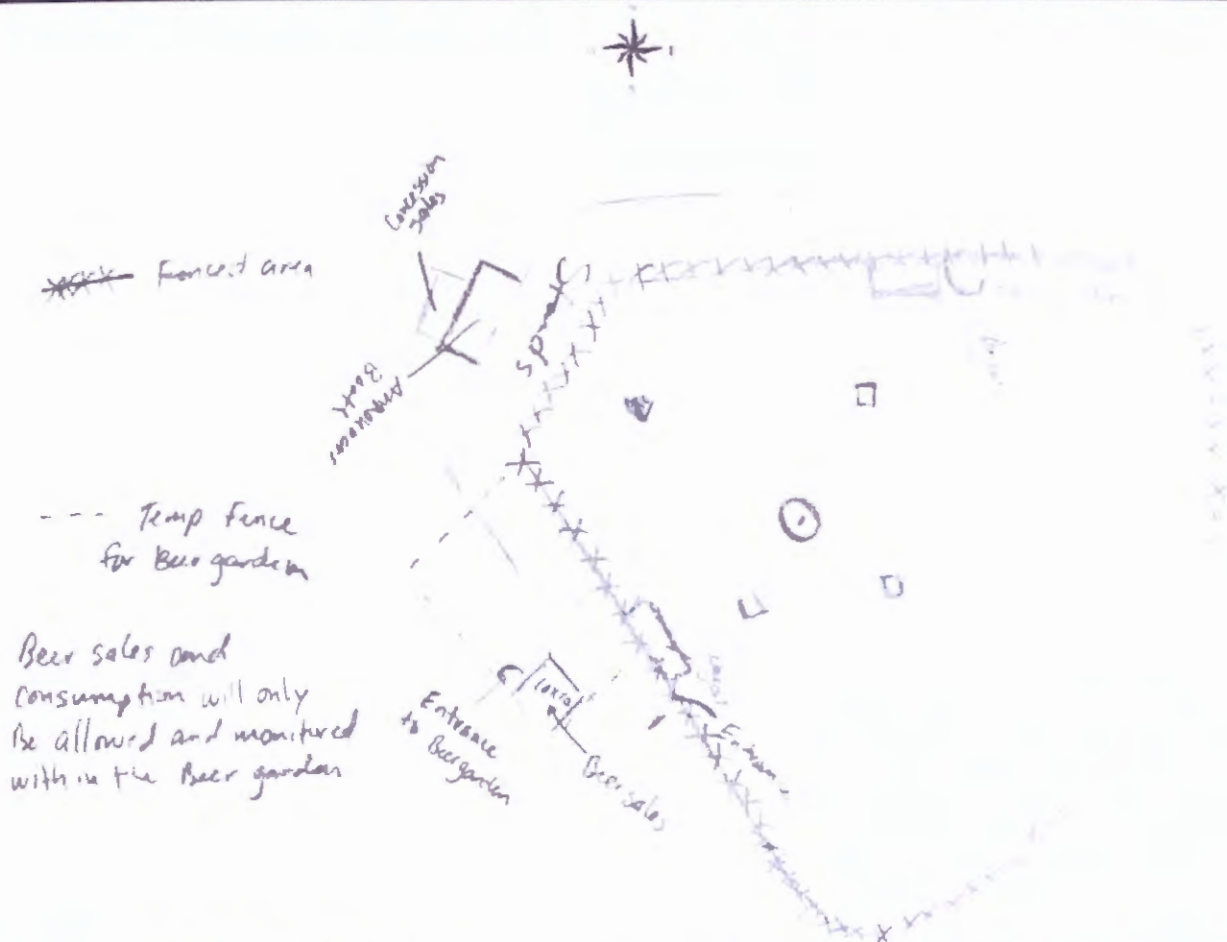 Concession
sales
xxxx Fenced area
Announcers
Booth
--- Temp Fence
for Beer garden
Beer sales and
consumption will only
Be allowed and monitured
with in the Beer garden
Entrance
to Beergarden
10x10
Beer sales
Entrance